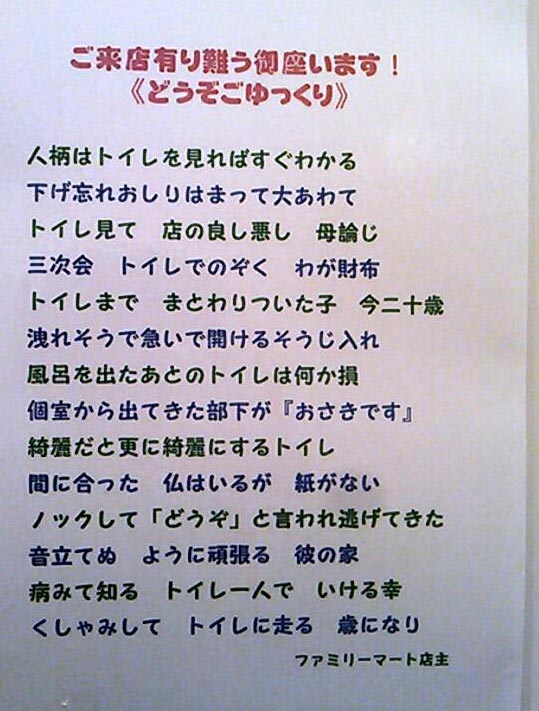 ご来店有り難う御座います！
《どうぞごゆっくり》
人柄はトイレを見ればすぐわかる
下げ忘れおしりはまって大あわて
トイレ見て　店の良し悪し　母論じ
三次会　トイレでのぞく　わが財布
トイレまで　まとわりついた子　今二十歳
洩れそうで急いで開けるそうじ入れ
風呂を出たあとのトイレは何か損
個室から出てきた部下が『おさきです』
綺麗だと更に綺麗にするトイレ
間に合った　仏はいるが　紙がない
ノックして「どうぞ」と言われ逃げてきた
音立てぬ　ように頑張る　彼の家
病みて知る　トイレ一人で　いける幸
くしゃみして　トイレに走る　歳になり
ファミリーマート店主